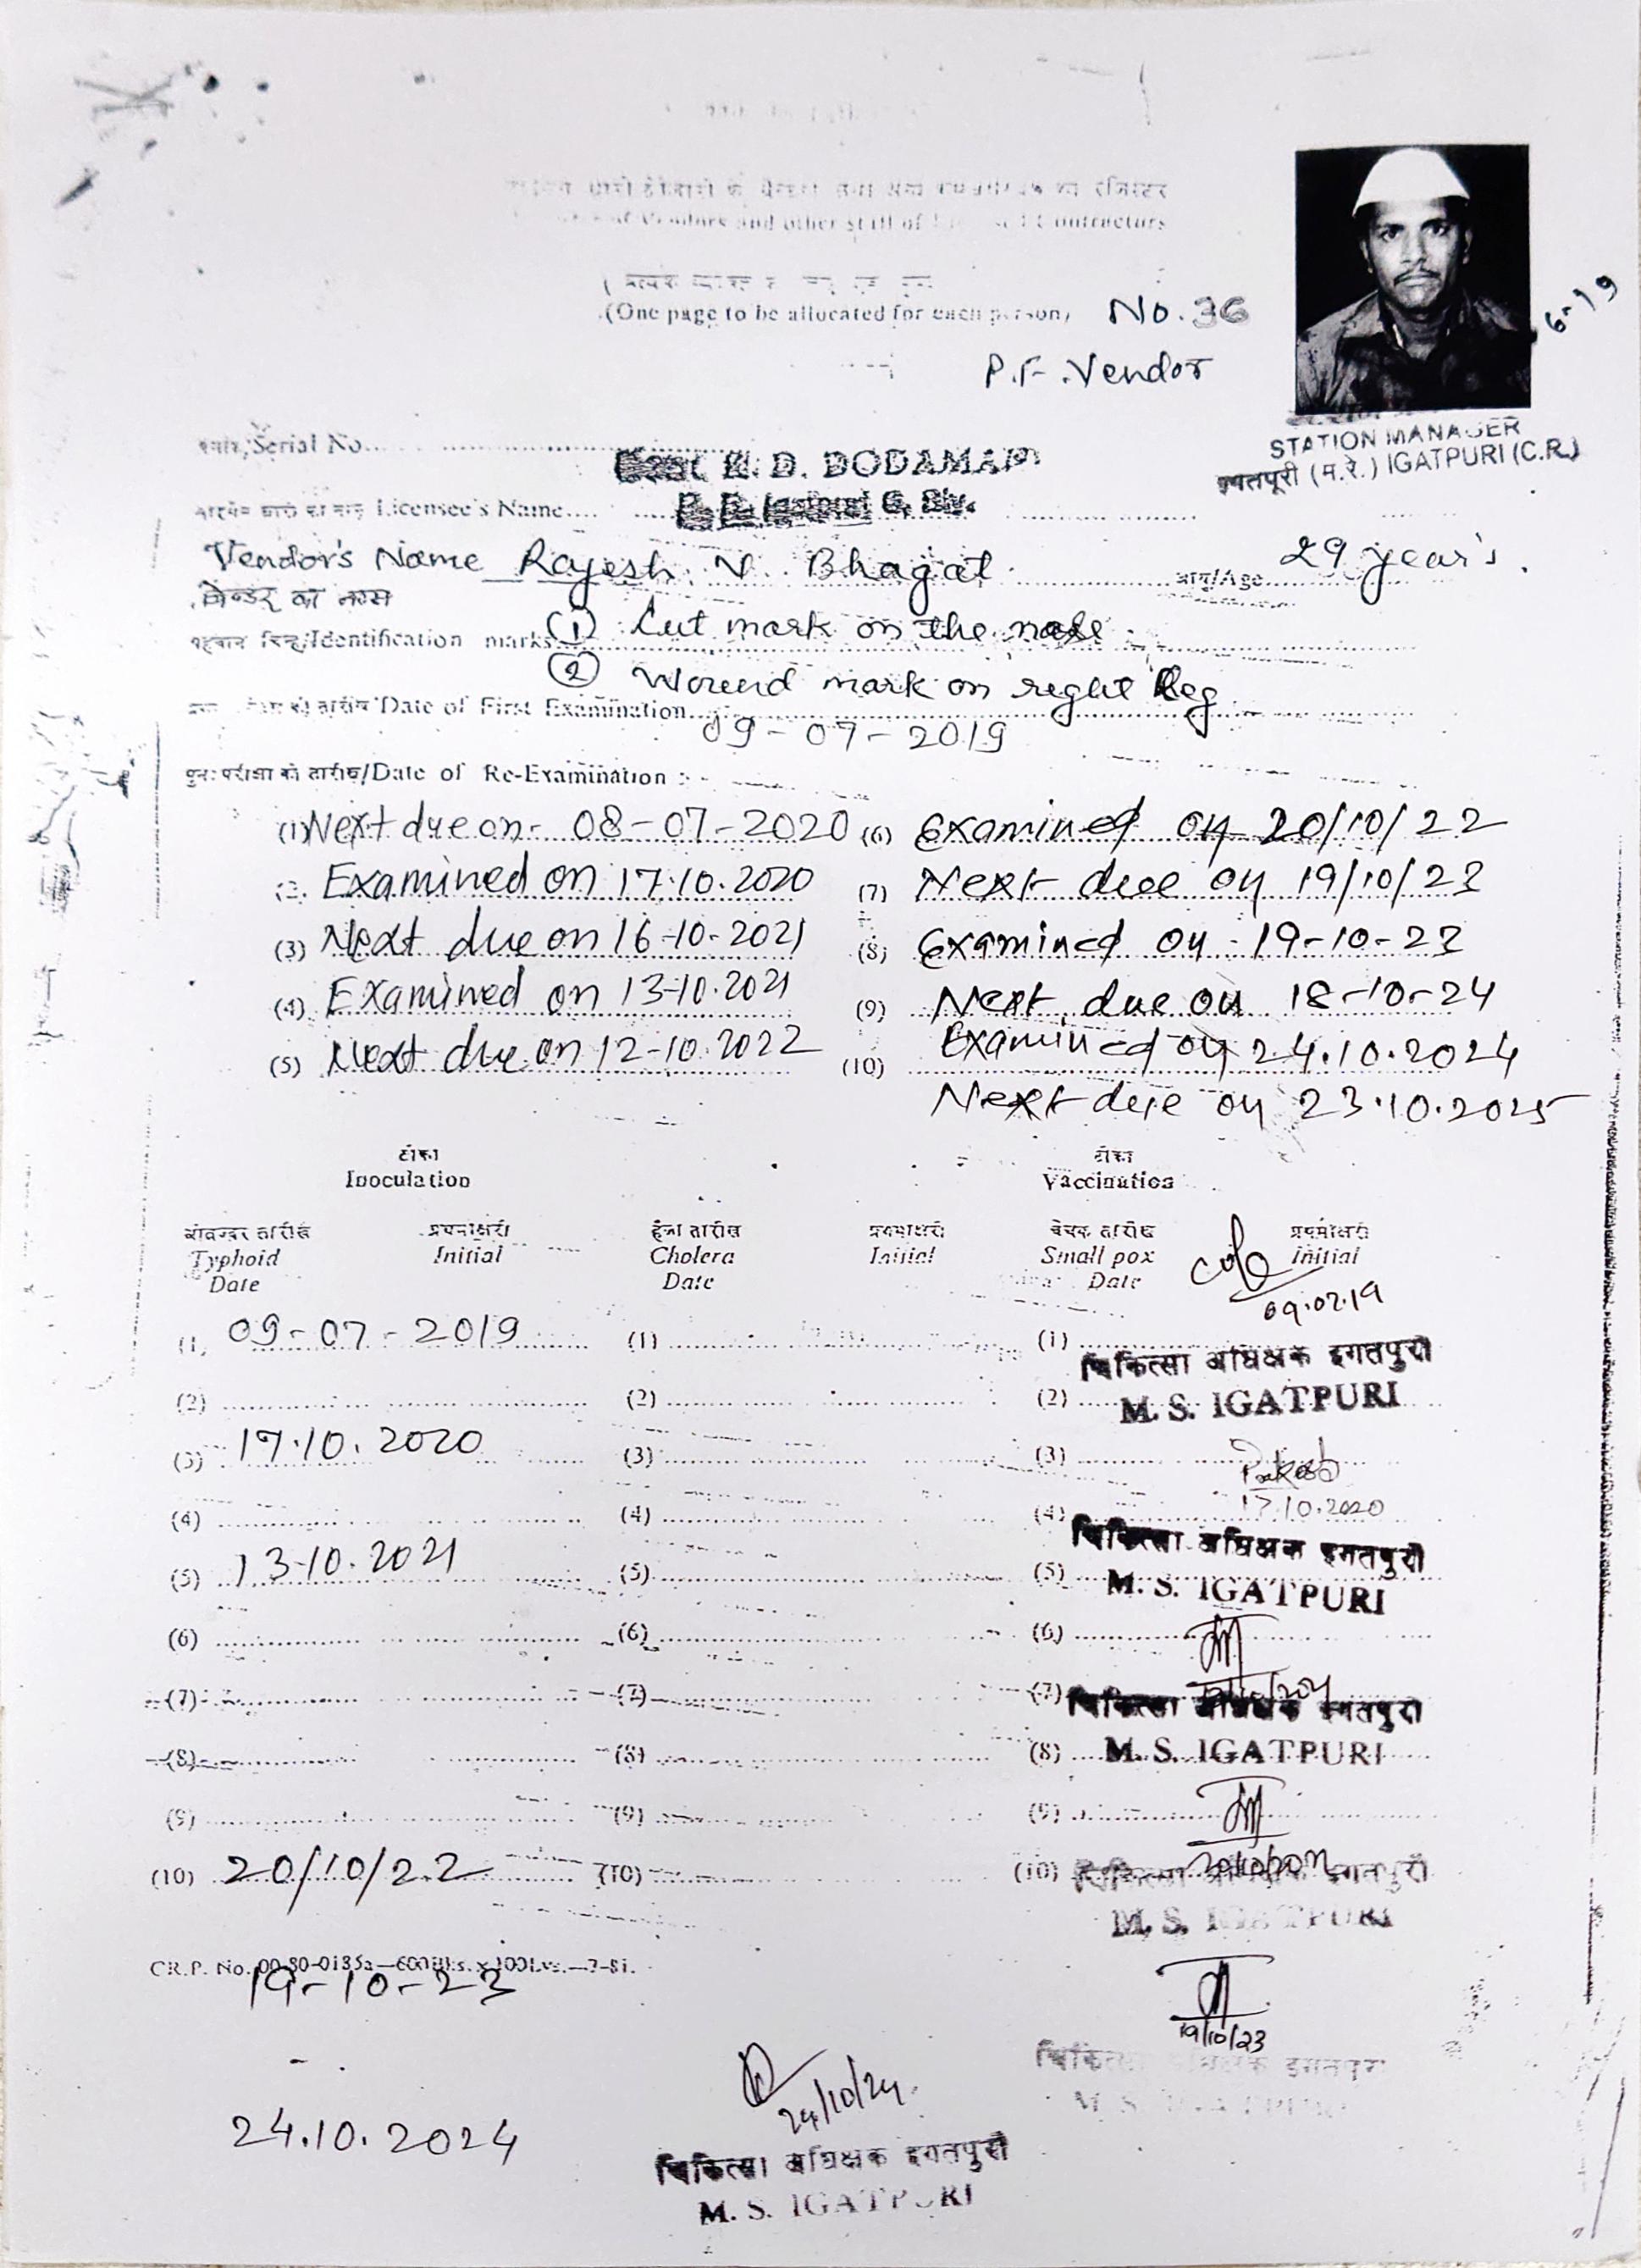 रजिस्टर
of Vendors and other staff of Contractors
(One page to be allocated for each person) No. 36
P.F. Vendor
6-19
STATION MANAGER
इगतपूरी (म.रे.) IGATPURI (C.R.)
Serial No.
D. BODAMAP
Licensee's Name
Vendor's Name Rajesh N. Bhagat आयु/Age 29 year's.
वेन्डर का नाम
पहचान चिन्ह/Identification marks (1) Cut mark on the nose
(2) Wound mark on right leg
Date of First Examination 09-07-2019
पुनः परीक्षा की तारीख/Date of Re-Examination :-
(1) Next due on- 08-07-2020 (6) Examined on 20/10/22
(2) Examined on 17.10.2020 (7) Next due on 19/10/23
(3) Next due on 16-10-2021 (8) Examined on 19-10-23
(4) Examined on 13-10.2021 (9) Next due on 18-10-24
(5) Next due on 12-10.2022 (10) Examined on 24.10.2024
Next due on 23.10.2025
टीका टीका
Inoculation Vaccination
तारीख प्रथमाक्षरी हैजा तारीख प्रथमाक्षरी चेचक तारीख प्रथमाक्षरी
Typhoid Initial Cholera Initial Small pox Initial
Date Date Date
09.07.19
(1) 09-07-2019 (1) (1)
चिकित्सा अधिक्षक इगतपुरी
(2) (2) (2) M. S. IGATPURI
(3) 17.10.2020 (3) (3)
17.10.2020
(4) (4) (4)
चिकित्सा अधिक्षक इगतपुरी
(5) 13-10.2021 (5) (5) M. S. IGATPURI
(6) (6) (6)
(7) (7) (7)
चिकित्सा अधिक्षक इगतपुरी
(8) (8) (8) M. S. IGATPURI
(9) (9) (9)
(10) 20/10/22 (10) (10) चिकित्सा अधिक्षक इगतपुरी
M. S. IGATPURI
CR.P. No.
19-10-23
19/10/23
चिकित्सा अधिक्षक इगतपुरी
M. S. IGATPURI
24/10/24
24.10.2024
चिकित्सा अधिक्षक इगतपुरी
M. S. IGATPURI